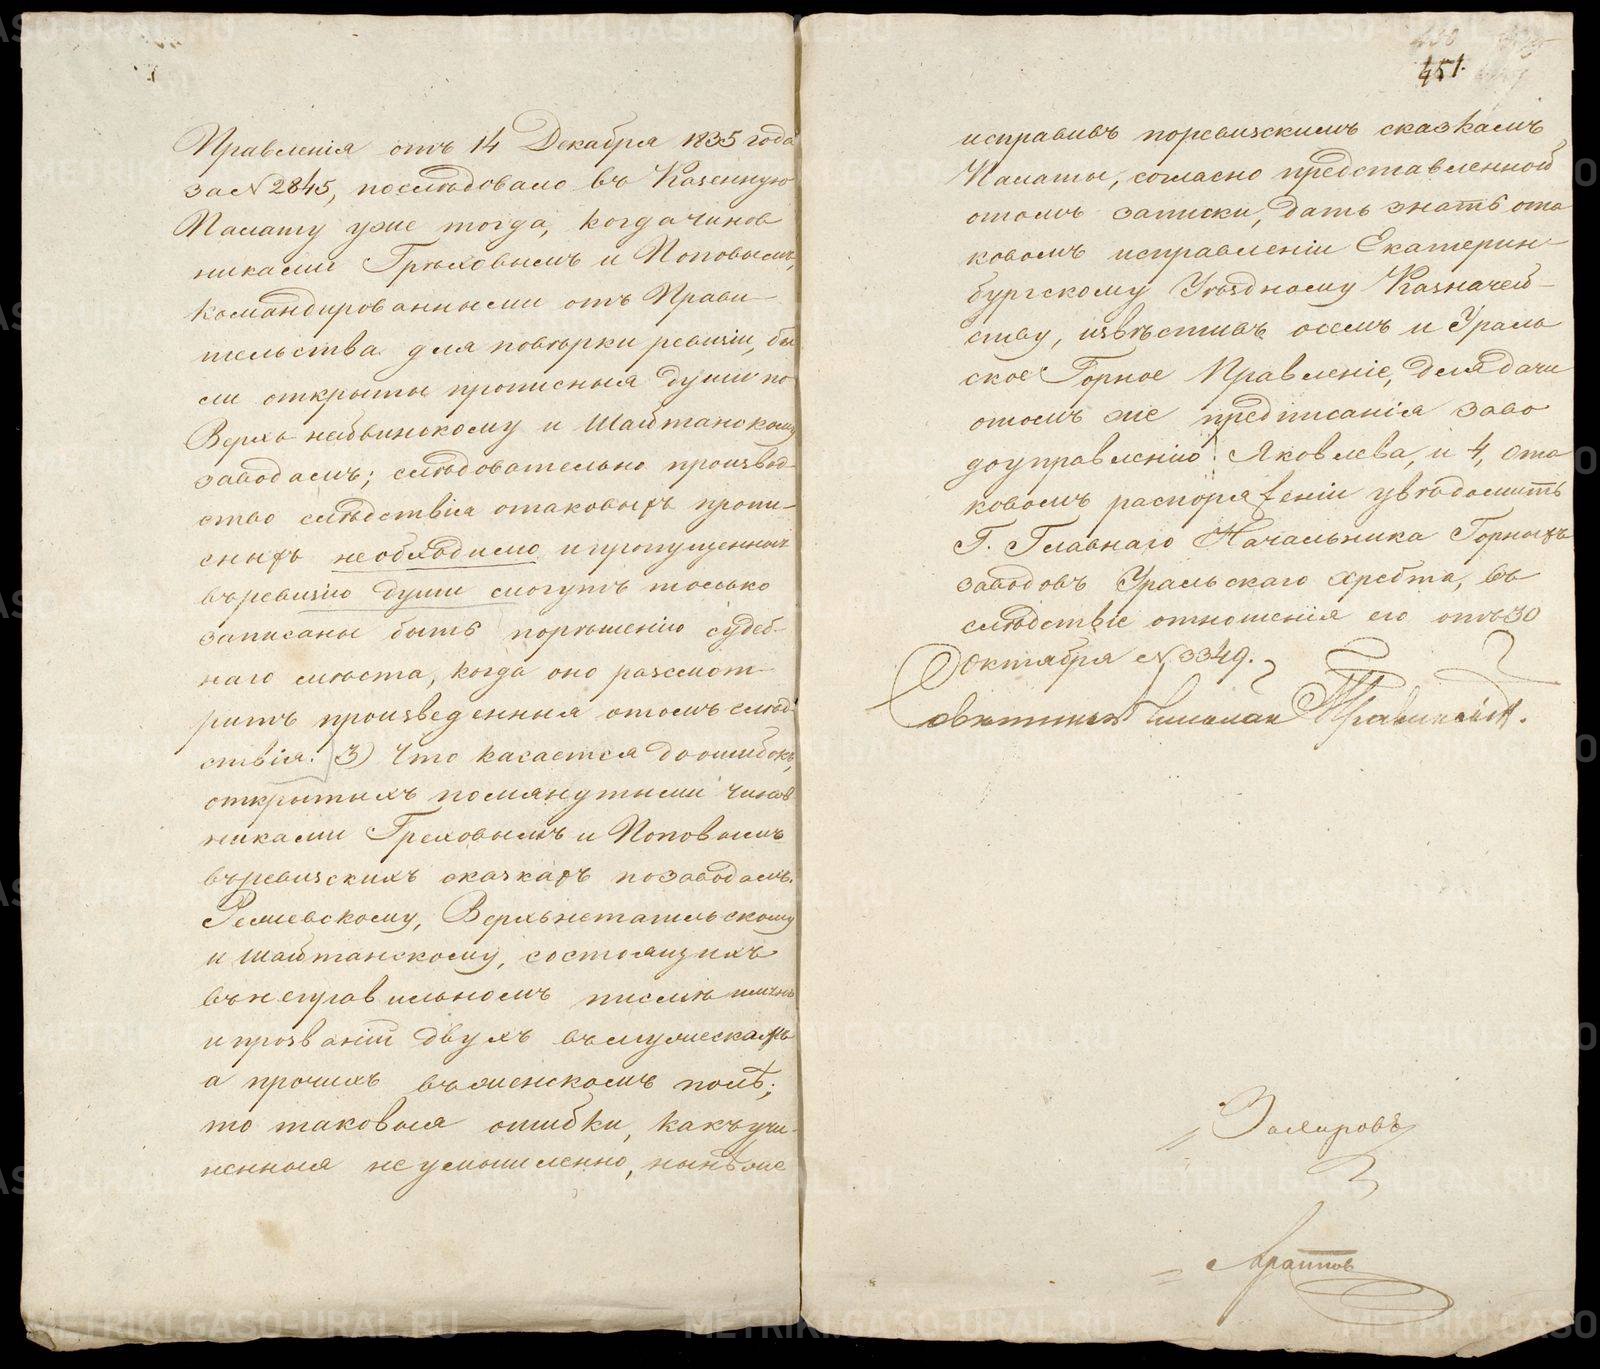 Правленія отъ 14 Декабря 1835 года
за № 2845, послѣдовало въ Казенную
Палату уже тогда, когда чинов
никами Грѣховымъ и Поповымъ,
командированными отъ Прави-
тельства для повѣрки ревизіи, бы
ли открыты прописныя души по
Верхъ нейвинскому и Шайтанскому
заводамъ; слѣдовательно производ-
ство слѣдствія отаковыхъ пропи-
сныхъ необходимо и пропущенныя
въревизію души могутъ только
записаны быть порѣшенію судеб-
наго мѣста, когда оно разсмот-
ритъ произведенныя отомъ слѣд-
ствія. 3) Что касается доошибокъ,
открытыхъ помянутыми чинов
никами Греховымъ и Поповымъ
въревизскихъ сказкахъ позаводамъ.
Режевскому, Верхьнетагильскому
и Шайтанскому, состоящихъ
въ неправильномъ писмѣ имянъ
и прозваній двухъ въмужескахъ
а прочихъ въженскомъ полѣ;
то таковыя ошибки, какъ учи-
ненныя неумышленно, нынѣ же
451.
исправивъ поревизскимъ сказкамъ
Палаты, согласно представленной
отомъ записки, дать знать ота
ковомъ исправленіи Екатерин-
бургскому Уѣздному Казначей-
ству, извѣстивъ осемъ и Ураль
ское Горное Правленіе, для дачи
отомъ же предписанія заво
доуправленію Яковлева, и 4, Ота
ковомъ распоряженіи увѣдомить
Г. Главнаго Начальника Горныхъ
заводовъ Уральскаго хребта, въ
слѣдствіе отношенія его отъ 30
Октября № 3349.